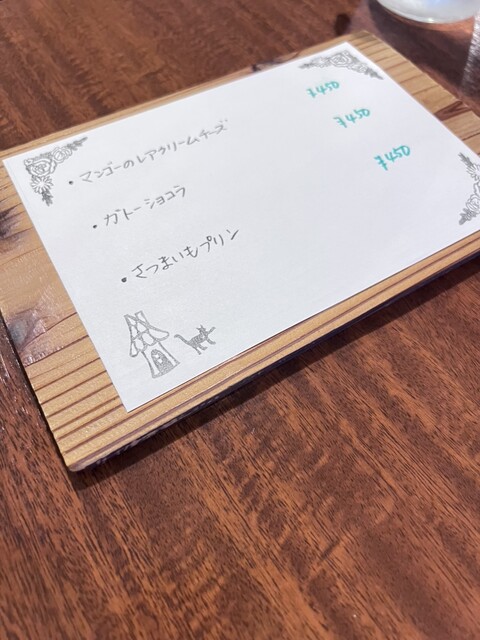 ・マンゴーのレアクリームチーズ ¥450
・ガトーショコラ ¥450
・さつまいもプリン ¥450